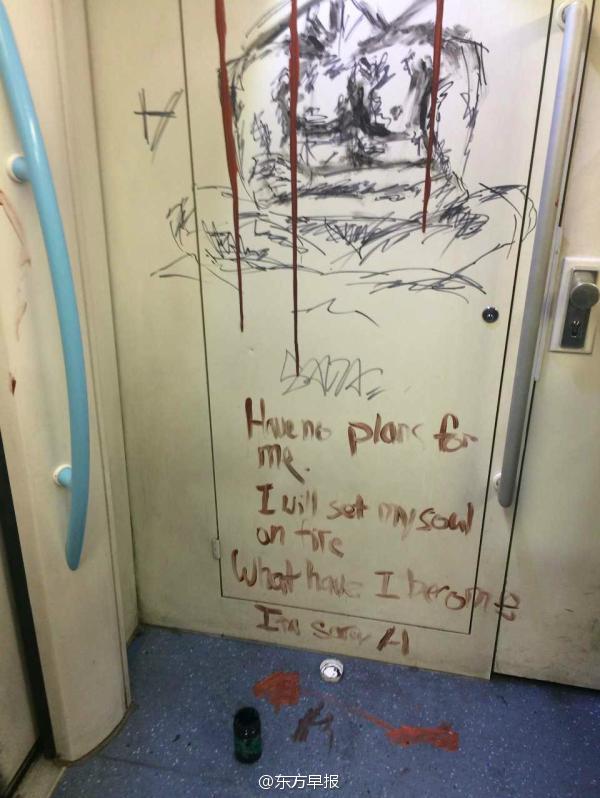 H
Have no plans for
me.
I will set my soul
on fire
What have I become
I'm sorry H
@东方早报